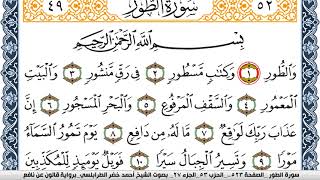 ٥٢ سُورَةُ الطُّورِ ٤٩
بِسْمِ اللَّهِ الرَّحْمَٰنِ الرَّحِيمِ
وَالطُّورِ ١ وَكِتَابٍ مَّسْطُورٍ ٢ فِي رَقٍّ مَّنشُورٍ ٣ وَالْبَيْتِ
الْمَعْمُورِ ٤ وَالسَّقْفِ الْمَرْفُوعِ ٥ وَالْبَحْرِ الْمَسْجُورِ ٦ إِنَّ
عَذَابَ رَبِّكَ لَوَاقِعٌ ٧ مَّا لَهُ مِن دَافِعٍ ٨ يَوْمَ تَمُورُ السَّمَاءُ
مَوْرًا ٩ وَتَسِيرُ الْجِبَالُ سَيْرًا ١٠ فَوَيْلٌ يَوْمَئِذٍ لِّلْمُكَذِّبِينَ
سورة الطور - الصفحة ٥٢٣ - الحزب ٥٣ - الجزء ٢٧ - بصوت الشيخ أحمد خضر الطرابلسي - برواية قالون عن نافع